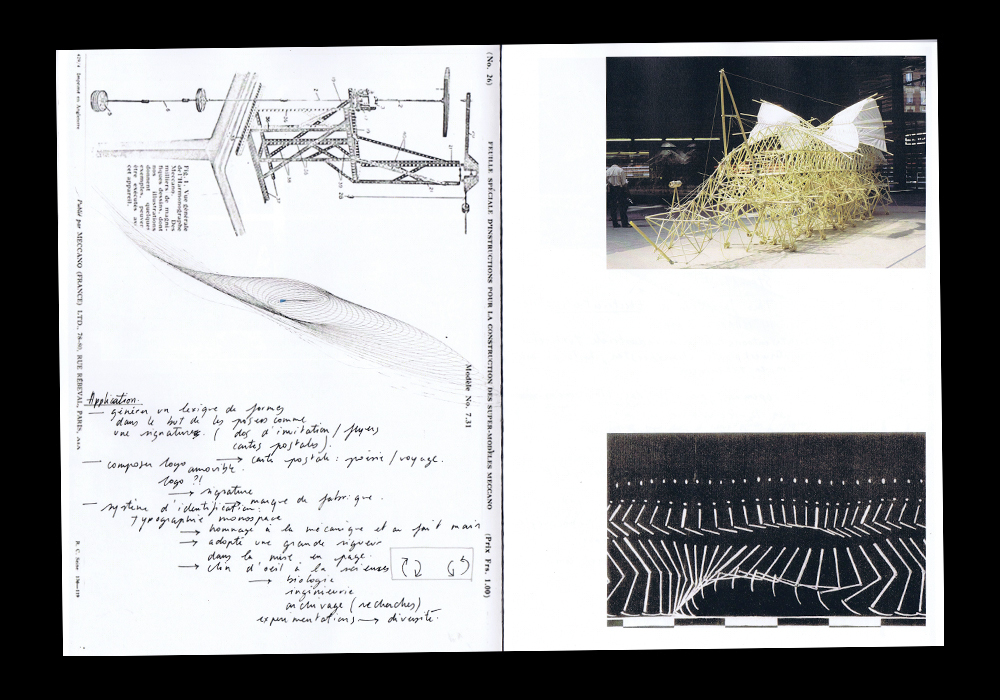 (No. 26) FEUILLE SPÉCIALE D'INSTRUCTIONS POUR LA CONSTRUCTION DES SUPER-MODÈLES MECCANO (Prix Frs. 1.00)
Modèle No. 7.31
Fig. 1. Vue générale
de l'Harmonographe
Meccano. Des
milliers de magni-
fiques dessins, dont
nos illustrations
donnent quelques
exemples, peuvent
être exécutés au
cet appareil.
Imprimé en Angleterre
Publié par MECCANO (FRANCE) LTD., 78-80, RUE RÉBEVAL, PARIS
Application.
— générer un lexique de formes
dans le but de les posers comme
une signature. ( dos d'invitation / flyers
cartes postales).
— composer logo amovible. → carte postale : poésie / voyage.
logo ?!
→ signature
→ marque de fabrique.
— système d'identification:
typographie monospace
→ hommage à la mécanique et au fait main
→ adopte une grande rigueur
dans la mise en page.
→ clin d'oeil à la science
→ biologie
ingénieurie
archivage (recherches)
expérimentations → diversité.